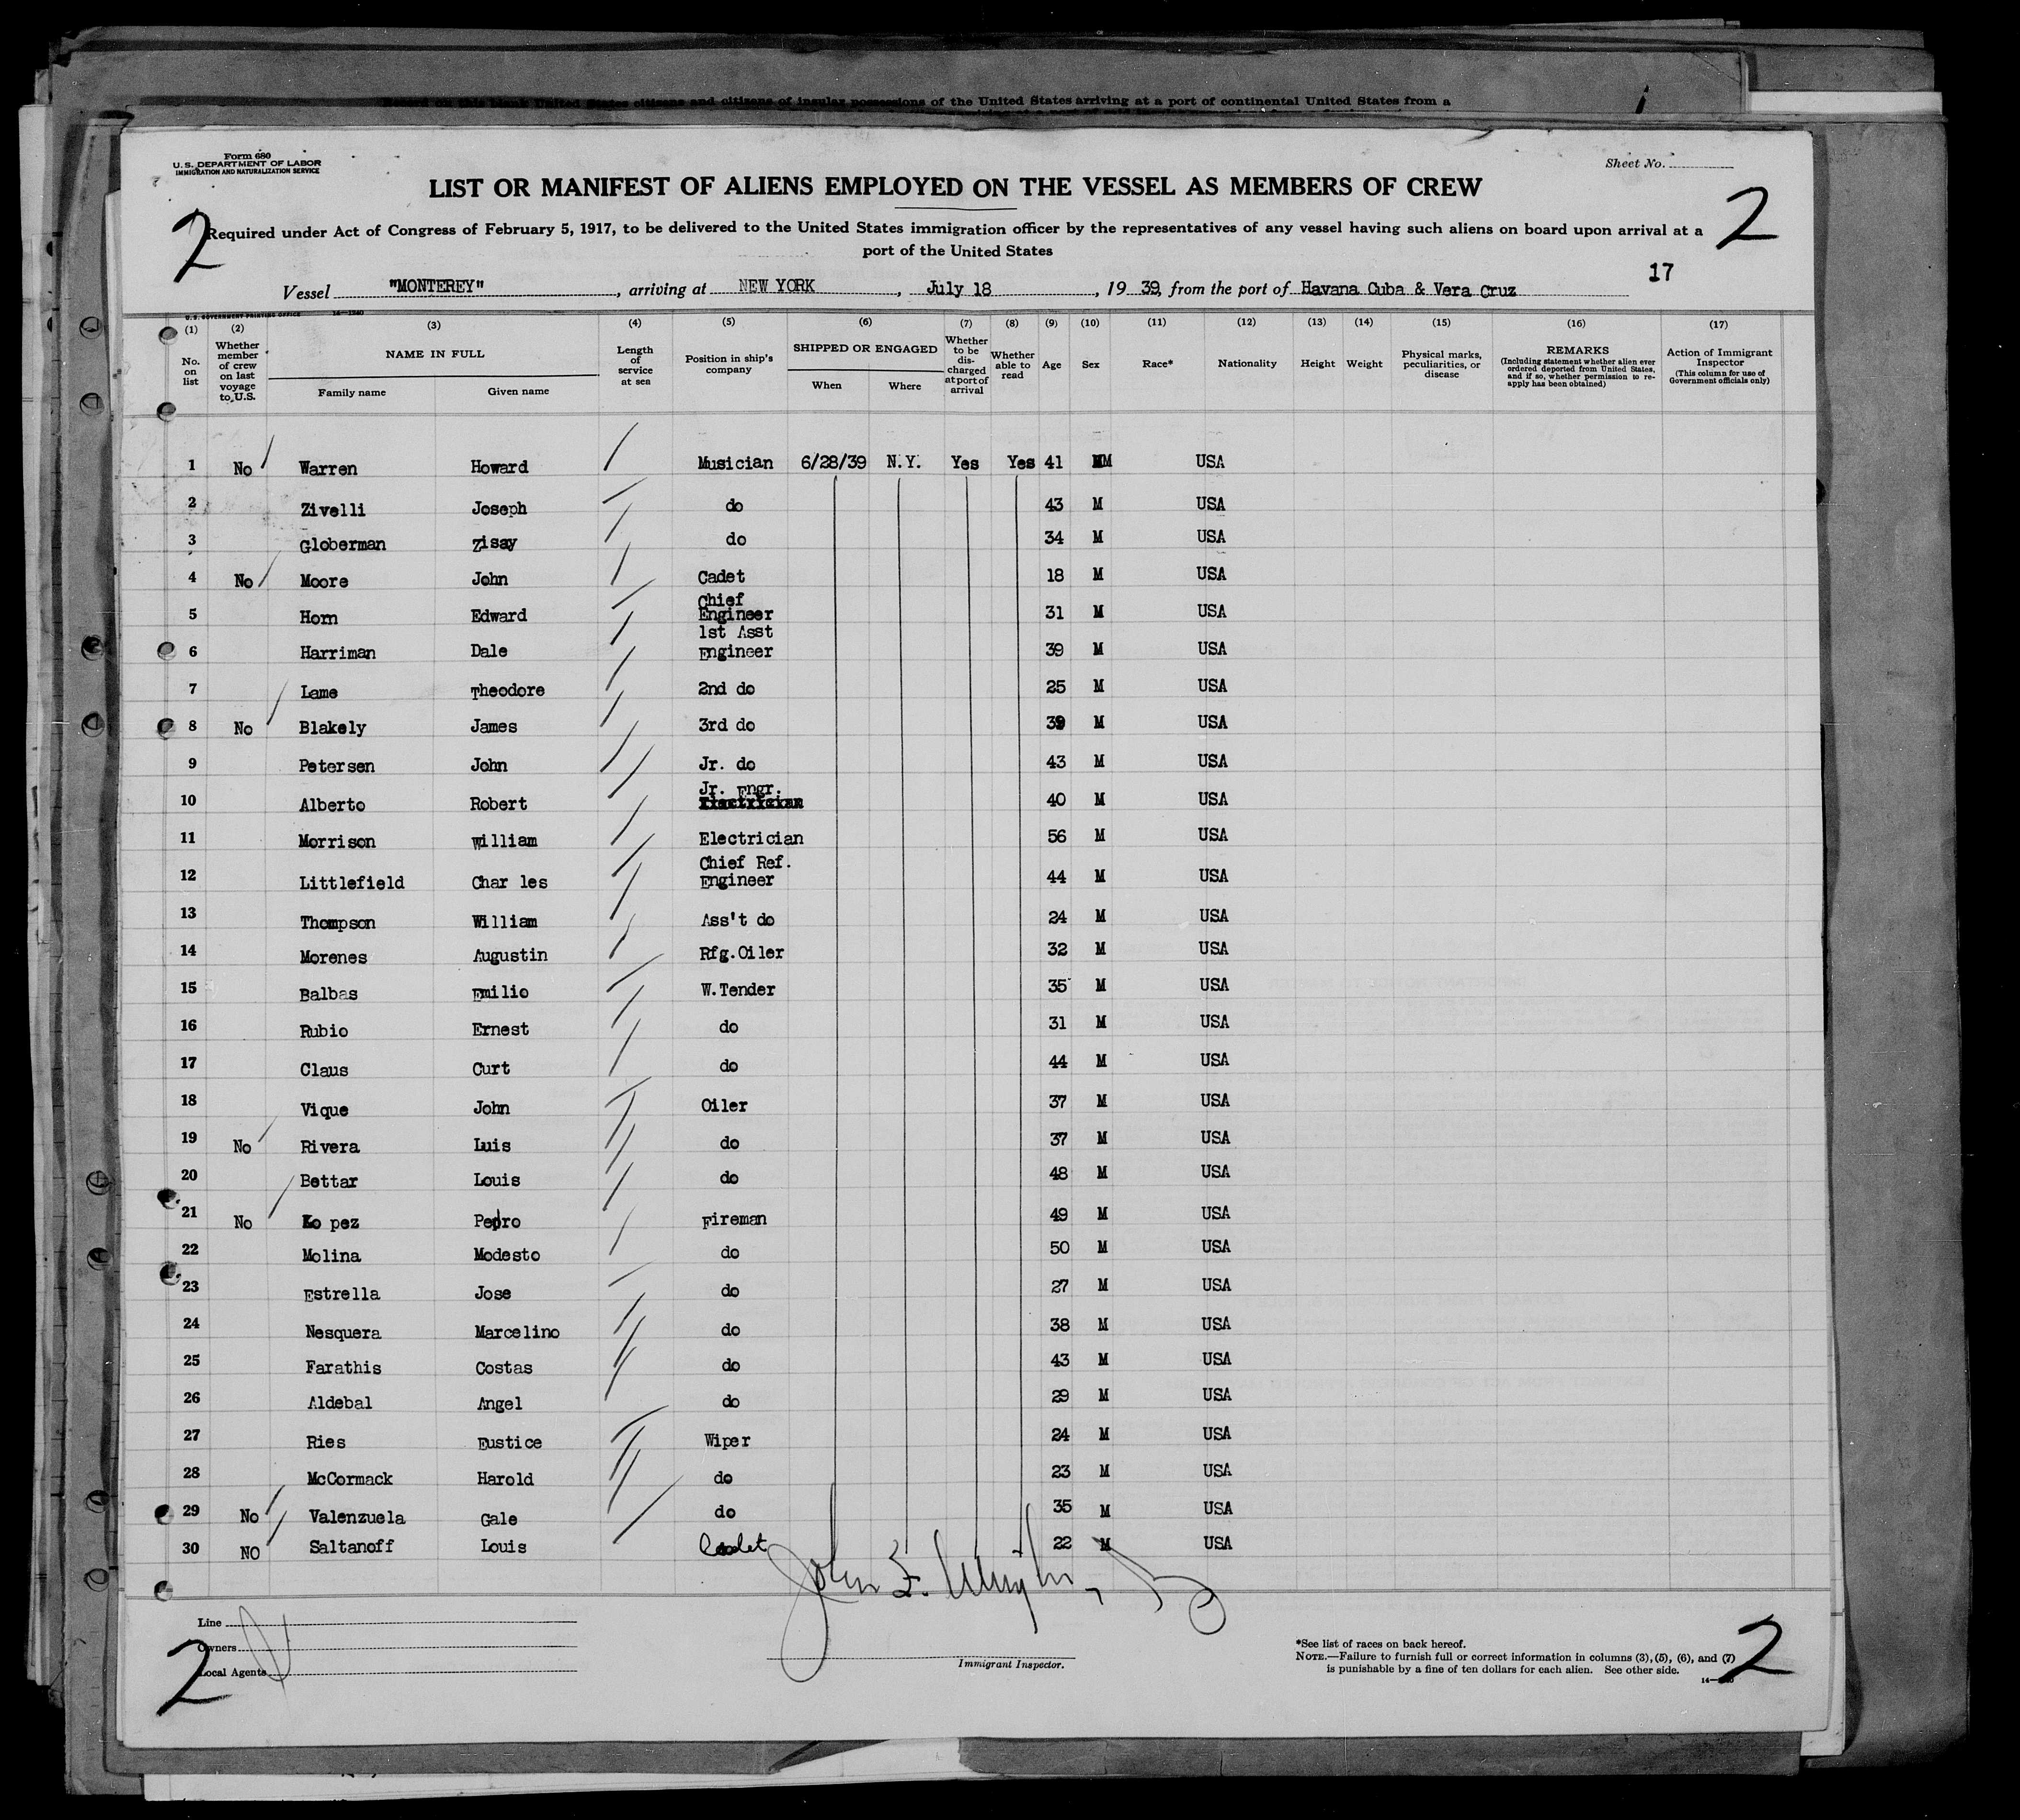 Record on this blank United States citizens and citizens of insular possessions of the United States arriving at a port of continental United States from a
Form 680
U. S. DEPARTMENT OF LABOR
IMMIGRATION AND NATURALIZATION SERVICE
Sheet No.
LIST OR MANIFEST OF ALIENS EMPLOYED ON THE VESSEL AS MEMBERS OF CREW
2 2
Required under Act of Congress of February 5, 1917, to be delivered to the United States immigration officer by the representatives of any vessel having such aliens on board upon arrival at a
port of the United States
17
Vessel "MONTEREY", arriving at NEW YORK, July 18, 19 39, from the port of Havana Cuba & Vera Cruz
U. S. GOVERNMENT PRINTING OFFICE
(1) (2) (3) (4) (5) (6) (7) (8) (9) (10) (11) (12) (13) (14) (15) (16) (17)
No. on list Whether member of crew on last voyage to U.S. NAME IN FULL Family name Given name Length of service at sea Position in ship's company SHIPPED OR ENGAGED When Where Whether to be discharged at port of arrival Whether able to read Age Sex Race* Nationality Height Weight Physical marks, peculiarities, or disease REMARKS (Including statement whether alien ever ordered deported from United States, and if so, whether permission to reapply has been obtained) Action of Immigrant Inspector (This column for use of Government officials only)
1 No Warren Howard Musician 6/28/39 N.Y. Yes Yes 41 M USA
2 Zivelli Joseph do 43 M USA
3 Globerman Zisay do 34 M USA
4 No Moore John Cadet 18 M USA
5 Horn Edward Chief Engineer 31 M USA
6 Harriman Dale 1st Asst Engineer 39 M USA
7 Lame Theodore 2nd do 25 M USA
8 No Blakely James 3rd do 39 M USA
9 Petersen John Jr. do 43 M USA
10 Alberto Robert Jr. Engr. Electrician 40 M USA
11 Morrison William Electrician 56 M USA
12 Littlefield Char les Chief Ref. Engineer 44 M USA
13 Thompson William Ass't do 24 M USA
14 Morenes Augustin Rfg.Oiler 32 M USA
15 Balbas Emilio W.Tender 35 M USA
16 Rubio Ernest do 31 M USA
17 Claus Curt do 44 M USA
18 Vique John Oiler 37 M USA
19 No Rivera Luis do 37 M USA
20 Bettar Louis do 48 M USA
21 No Lo pez Pedro Fireman 49 M USA
22 Molina Modesto do 50 M USA
23 Estrella Jose do 27 M USA
24 Nesquera Marcelino do 38 M USA
25 Farathis Costas do 43 M USA
26 Aldebal Angel do 29 M USA
27 Ries Eustice Wiper 24 M USA
28 McCormack Harold do 23 M USA
29 No Valenzuela Gale do 35 M USA
30 NO Saltanoff Louis Cadet 22 M USA
Line
Owners
Local Agents
Immigrant Inspector.
*See list of races on back hereof.
NOTE.—Failure to furnish full or correct information in columns (3), (5), (6), and (7)
is punishable by a fine of ten dollars for each alien. See other side.
2 2